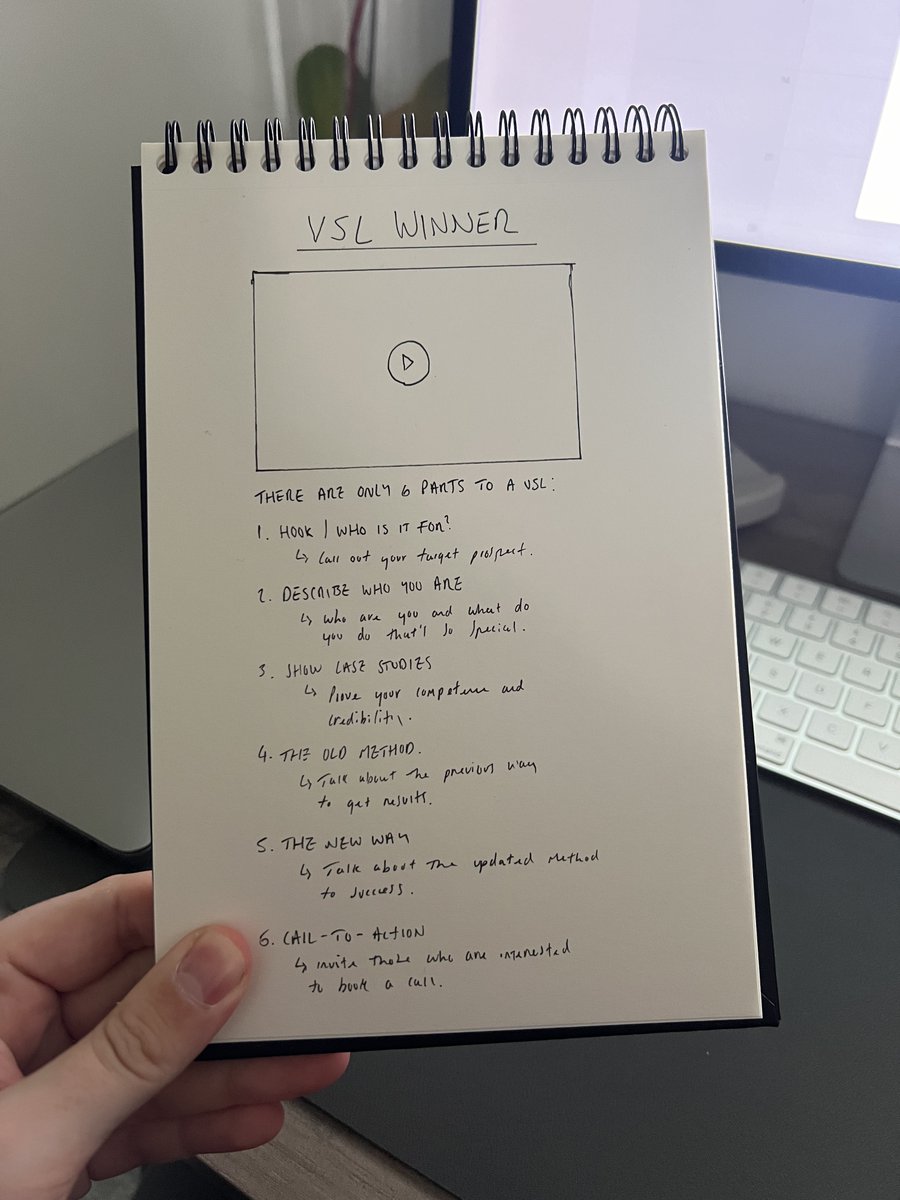 VSL WINNER
THERE ARE ONLY 6 PARTS TO A VSL:
1. HOOK / WHO IS IT FOR?
↳ Call out your target prospect.
2. DESCRIBE WHO YOU ARE
↳ who are you and what do
you do that's so special.
3. SHOW CASE STUDIES
↳ Prove your competence and
credibility.
4. THE OLD METHOD.
↳ Talk about the previous way
to get results.
5. THE NEW WAY
↳ Talk about the updated method
to success.
6. CALL-TO-ACTION
↳ invite those who are interested
to book a call.